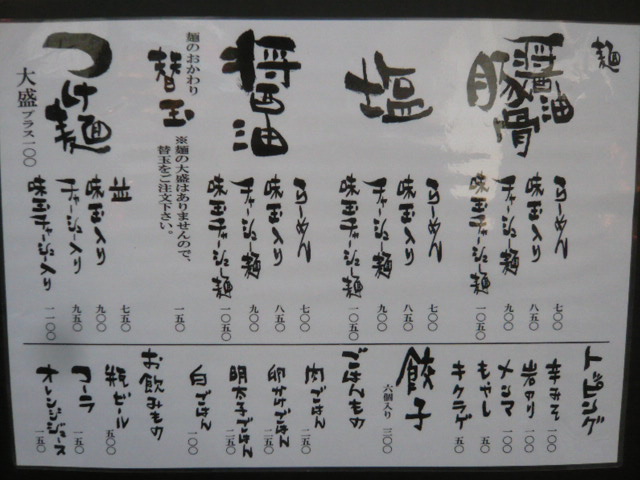 麺
醤油
豚骨
らーめん 七〇〇
味玉入り 八五〇
チャーシュー麺 九〇〇
味玉チャーシュー麺 一〇五〇
塩
らーめん 七〇〇
味玉入り 八五〇
チャーシュー麺 九〇〇
味玉チャーシュー麺 一〇五〇
醤油
らーめん 七〇〇
味玉入り 八五〇
チャーシュー麺 九〇〇
味玉チャーシュー麺 一〇五〇
麺のおかわり
替玉 一五〇
※麺の大盛はありませんので、
替玉をご注文下さい。
つけ麺
大盛プラス一〇〇
並 七五〇
味玉入り 九〇〇
チャーシュー入り 九五〇
味玉チャーシュー入り 一一〇〇
トッピング
辛みそ 一〇〇
岩のり 一〇〇
メンマ 一〇〇
もやし 五〇
キクラゲ 五〇
餃子
六個入り 三〇〇
ごはんもの
肉ごはん 二五〇
卵かけごはん 二五〇
明太子ごはん 二五〇
白ごはん 一〇〇
お飲みもの
瓶ビール 五〇〇
コーラ 一五〇
オレンジジュース 一五〇